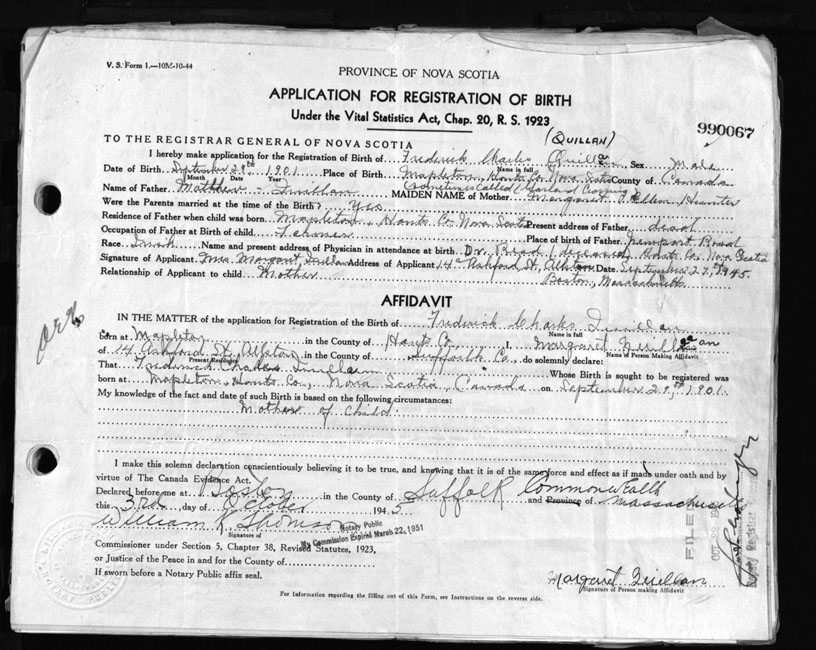 V. S. Form 1.—10M-10-44
PROVINCE OF NOVA SCOTIA
APPLICATION FOR REGISTRATION OF BIRTH
Under the Vital Statistics Act, Chap. 20, R. S. 1923
990067
(QUILLAN)
TO THE REGISTRAR GENERAL OF NOVA SCOTIA
I hereby make application for the Registration of Birth of Frederick Charles Quillan Sex Male
Name in full
Date of Birth September 29th 1901 Place of Birth Mapleton, Hants Co. Nova Scotia County of Canada
Month Day Year
(Sometimes Called) Garland Crossing
Name of Father Matthew Quillan MAIDEN NAME of Mother Margaret Ellen Hunter
Were the Parents married at the time of the Birth? Yes
Residence of Father when child was born Mapleton, Hants Co. Nova Scotia Present address of Father dead
Occupation of Father at Birth of child Place of birth of Father Newport Road
Race Irish Name and present address of Physician in attendance at birth Dr. Read (deceased) Hants Co. Nova Scotia
Signature of Applicant Mrs Margaret Quillan Address of Applicant 14 Ashford St, Allston Date September 27, 1945
Relationship of Applicant to child Mother Boston, Massachusetts
AFFIDAVIT
IN THE MATTER of the application for Registration of the Birth of Frederick Charles Quillan
Name in full
born at Mapleton in the County of Hants Co. I, Margaret Quillan
Name of Person Making Affidavit
of 14 Ashford St Allston in the County of Suffolk Co. do solemnly declare:
Present Residence
That Frederick Charles Quillan Whose Birth is sought to be registered was
born at Mapleton, Hants Co., Nova Scotia, Canada on September 29, th 1901.
My knowledge of the fact and date of such Birth is based on the following circumstances:
Mother of Child.
I make this solemn declaration conscientiously believing it to be true, and knowing that it is of the same force and effect as if made under oath and by
virtue of The Canada Evidence Act.
Declared before me at Boston in the County of Suffolk Commonwealth and Province of Massachusetts
this 3rd day of October 1945
William R Thomson
Notary Public
My Commission Expires March 22, 1951
Signature of
Commissioner under Section 5, Chapter 38, Revised Statutes, 1923,
or Justice of the Peace in and for the County of
If sworn before a Notary Public affix seal.
Margaret Quillan
Signature of Person making Affidavit
For Information regarding the filling out of this Form, see Instructions on the reverse side.
FILED